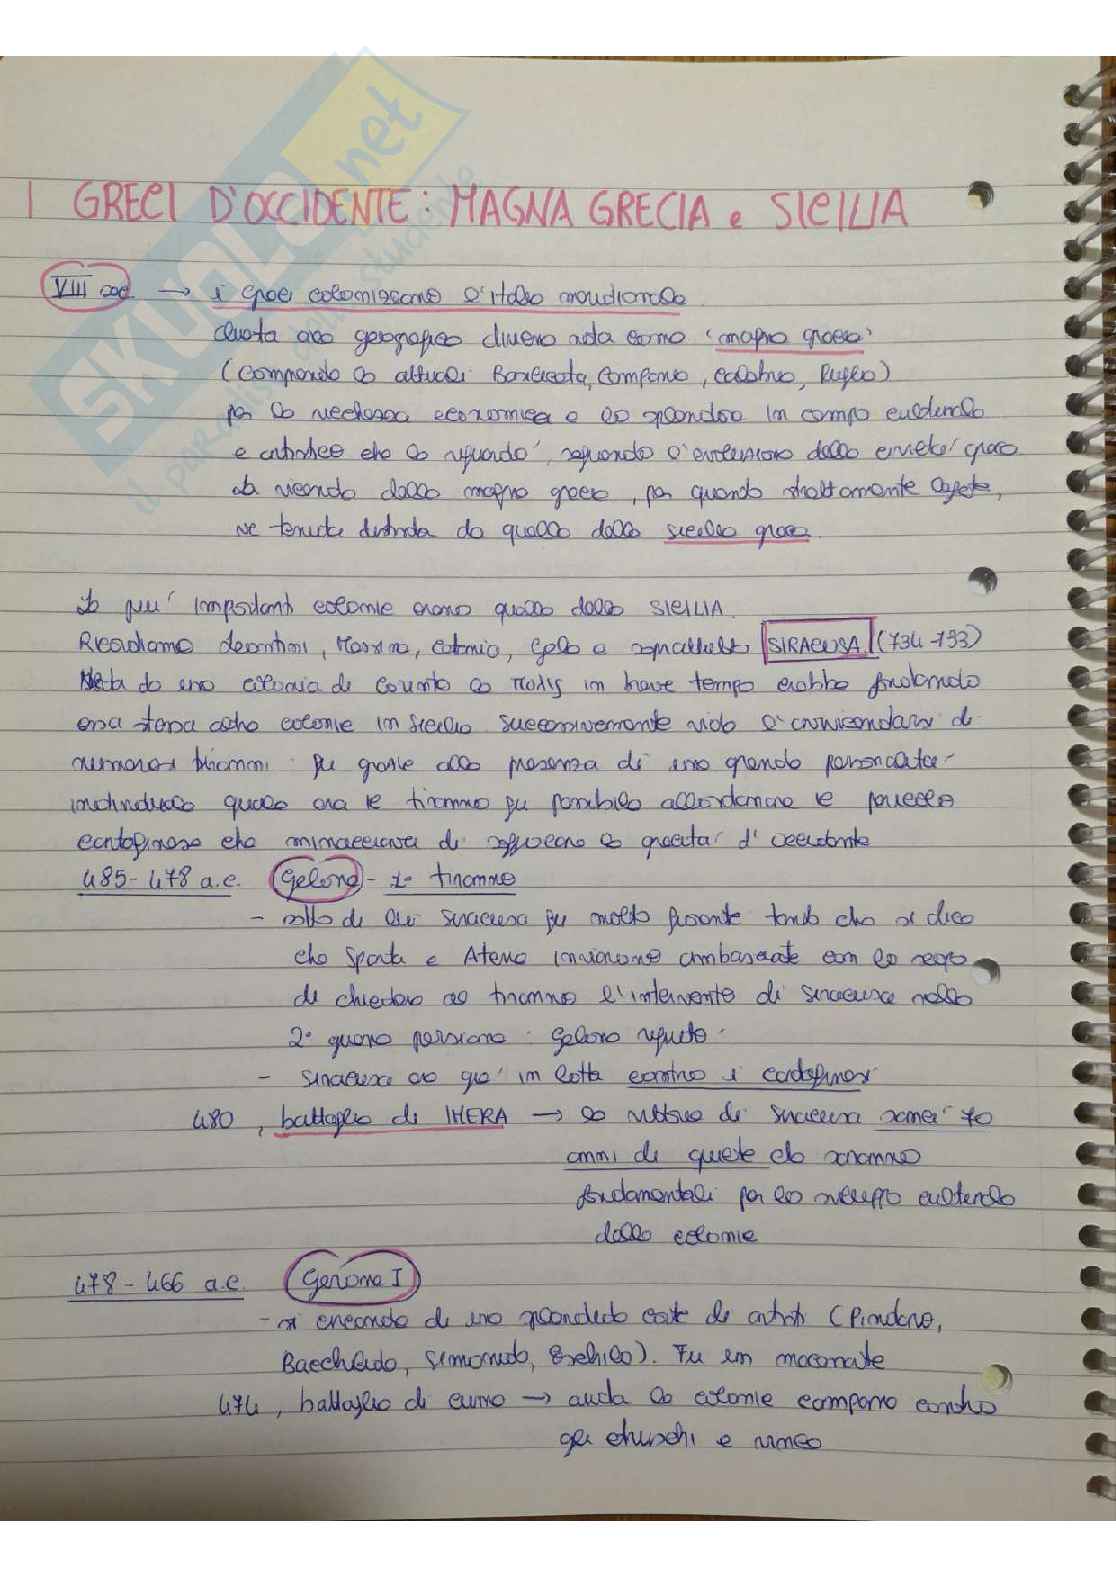 I GRECI D'OCCIDENTE: MAGNA GRECIA e SICILIA
VIII sec. → i greci colonizzano l'Italia meridionale
questa area geografica diviene nota come "magna grecia"
(comprende le attuali Basilicata, Campania, Calabria, Puglia)
per la ricchezza economica e lo splendore in campo culturale
e artistico che la riguardò, seguendo l'evoluzione della civiltà greca
La vicenda della magna grecia, per quanto strettamente legate,
va tenuta distinta da quella della sicilia greca
Le più importanti colonie erano quelle della SICILIA
Ricordiamo Leontini, Messina, Catania, Gela e soprattutto SIRACUSA (734-733)
Nata da una colonia di Corinto la πόλις in breve tempo crebbe fondando
essa stessa altre colonie in Sicilia. Successivamente vide l'avvicendarsi di
numerosi tiranni: fu grazie alla presenza di una grande personalità
individuale quale era il tiranno fu possibile allontanare il pericolo
cartaginese che minacciava di la grecità d'occidente
485-478 a.c. Gelone - 1° tiranno
- sotto di lui siracusa fu molto potente tanto che si dice
che Sparta e Atene inviarono ambasciate con lo scopo
di chiedere al tiranno l'intervento di siracusa nella
2° guerra persiana: Gelone rifiutò.
- siracusa era già in lotta contro i cartaginesi
480, battaglia di IMERA → la vittoria di siracusa 70
anni di quiete che saranno
fondamentali per lo sviluppo culturale
della colonia
478-466 a.c. Gerone I
- si circonda di una splendida corte di artisti (Pindaro,
Bacchilide, Simonide, Eschilo). Fu un mecenate
474, battaglia di cuma → aiuta la colonia campana contro
gli etruschi e vince
SKUOLA.net